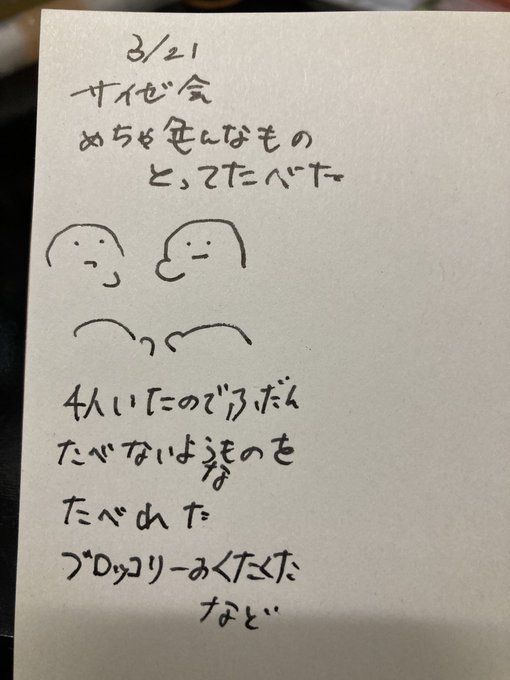 3/21
サイゼ会
めちゃ色んなもの
とってたべた
4人いたのでふだん
たべないようなものを
たべれた
ブロッコリーのくたくた
など